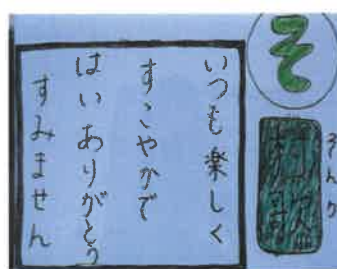 そ
そんか
いつも楽しく
すこやかで
はい ありがとう
すみません